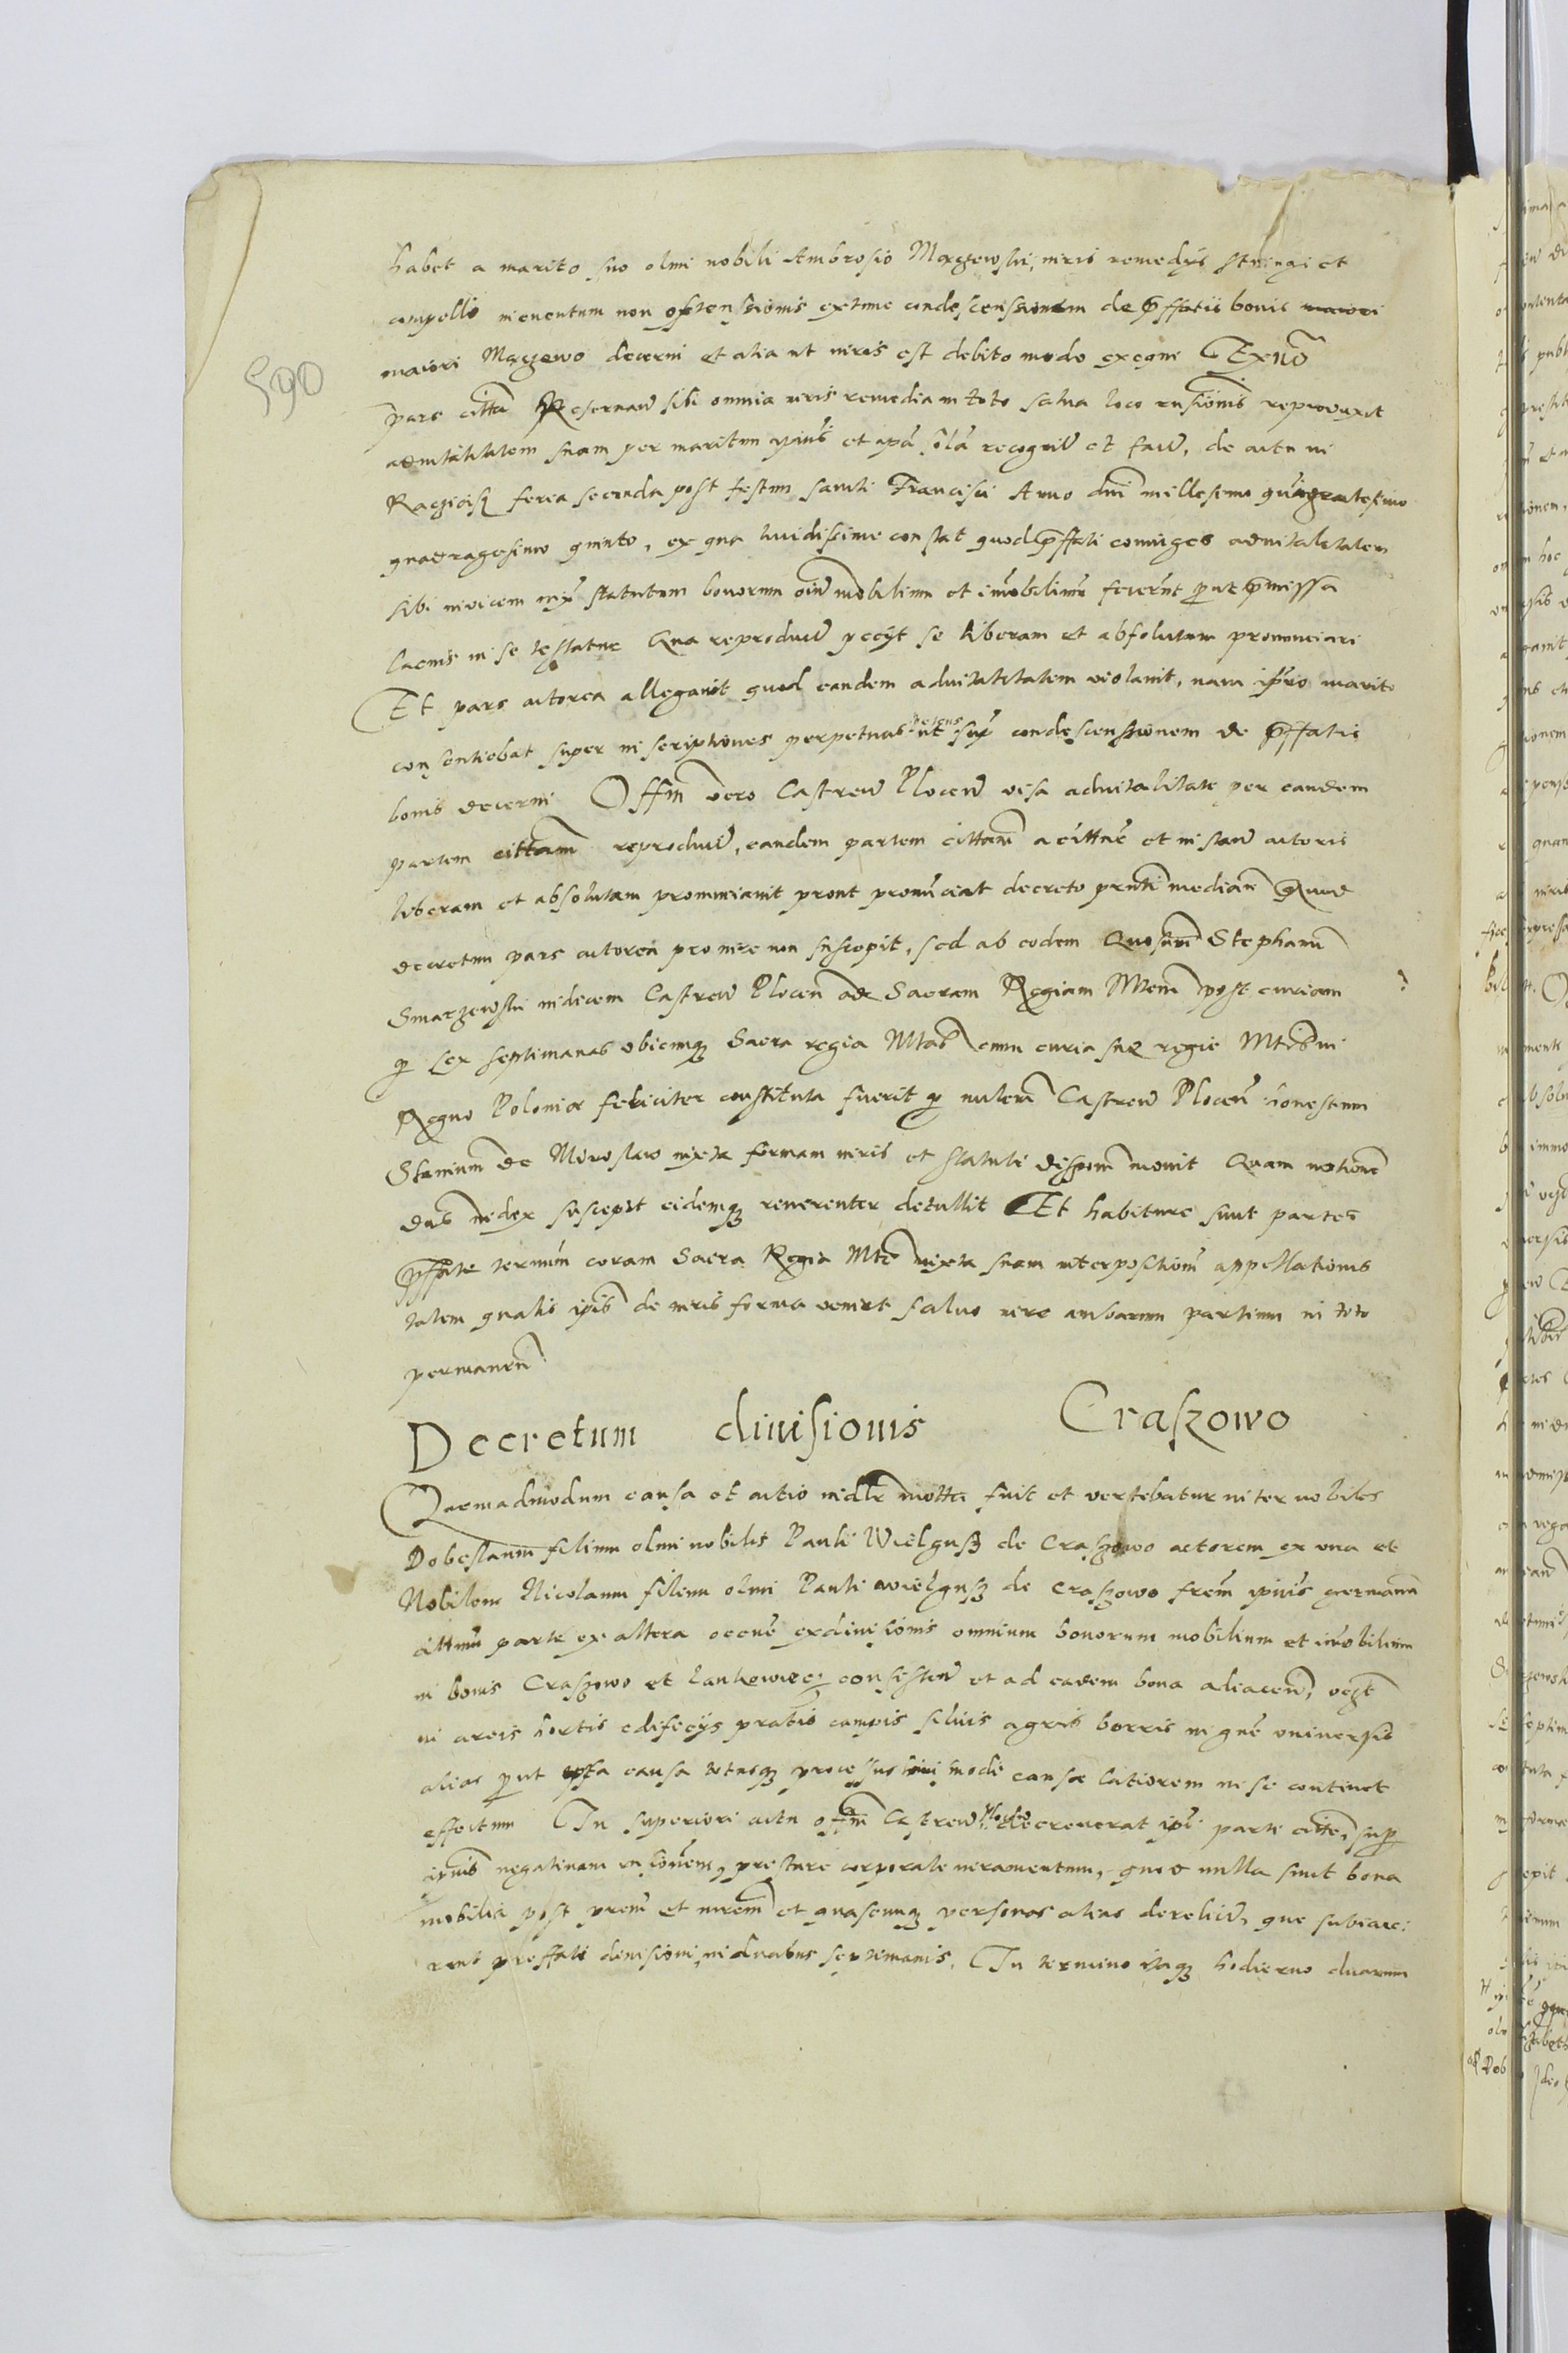 590
habet a marito suo olim nobili Ambrosio Maczewski, iuris remedys stringi et
compelli ineventum non ostensionis extunc condescensionem de prffatis bonis maiori
maiori Maczewo decerni et alia ut iuris est debito modo exequi Ex
pars citta Reservan sibi omnia iuris remedia in toto salva loco rnsionis reproduxit
advitalitatem suam per maritum ipius et ipa recognit et fact, de actu in
Raczias feria secunda post festum sancti Francisci Anno dni millesimo quingentesimo
quadragesimo quinto, ex qua lucidissime constat quod prffati coniuges advitalitatem
sibi invicem iux statutum bonorum oiu mobilium et imobilium fecernt prout pmissa
lacius in se testatur Qua reproducta peciit se liberam et absolutam pronunciari
Et pars actorea allegavit quod eandem advitalitatem violavit, nam ipso marito
consentiebat super inscriptiones perpetuas petens ut sup condescensionem de prffatis
bonis decerni Offm vero Castren Plocen visa advitalitate per eandem
partem cittam reproducta, eandem partem cittam a citne et instan actoris
liberam et absolutam pronunciavit prout pronunciat decreto prnti median Quod
decretum pars actorea pro iure non suscepit, sed ab eodem Stephanum
Smarzewski iudicem Castren Plocen ad Sacram Regiam Mtem post curiam
p sex septimanas ubicunq Sacra regia Mtas cum curia sua regie Mtis in
Regno Polonie feliciter constituta fuerit p mileum Castren Plocen honestum
Stanium de Miroslaw iuxta formam iuris et statuti movit Quam motione
dns iudex suscepit eidemq reverenter detullit Et habiture sunt partes
prffate termin coram Sacra Regia Mte iuxta suam interpositionem appellationis
talem qualis ipis de iuris forma veniet salvo iure ambarum partium in toto
permanen
Decretum divisionis Craszowo
Quemadmodum causa et actio motta fuit et vertebatur inter nobiles
Dobeslaum filium olim nobilis Pauli Wielgusz de Craszowo actorem ex una et
Nobilem Nicolaum filium olim Pauli wielgusz de Craszowo frem ipius germanu
cittum parte ex altera occne exdivisionis omnium bonorum mobilium et imobilium
in bonis Craszowo et Lankowiec consisten et ad eadem bona adiacen, vczt
in areis hortis edificiis pratis campis silvis agris borris in gne universis
alias prout ipsa causa totusq processus huismodi cause latiorem in se continet
effectum In superiori actu offm Castren Plocen decreverat ipi parte citte, sup
ipius negativam rnsionem, prestare corporale iuramentum, quod nulla sunt bona
mobilia post prem et mrem et quascunq personas alias derelicta, que subiace:
rent preffate divisioni, in duabus septimanis. In termino itaq hodierno duarum